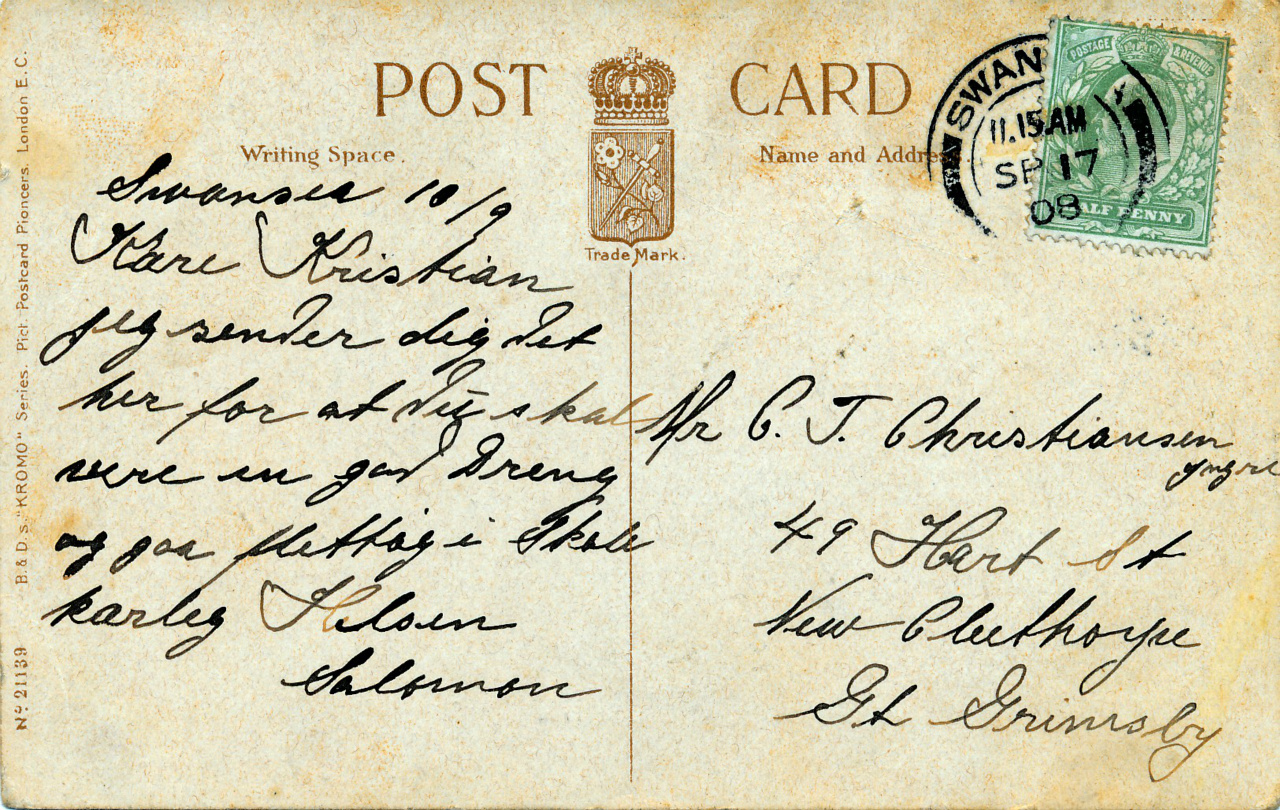 POST CARD
Writing Space.
Name and Address.
Trade Mark.
SWAN
11.15 AM
SP 17
08
POSTAGE & REVENUE
HALF PENNY
Swansea 10/9
Kære Kristian
jeg sender dig det
her for at du skal
være en god Dreng
og gaa flettig i Skole
kærleg Hilsen
Salomon
Mr C. T. Christiansen
yngre
49 Hart St
New Cleethorpe
Gt Grimsby
No 21139 B. & D.s "KROMO" Series. Pict. Postcard Pioncers. London E.C.